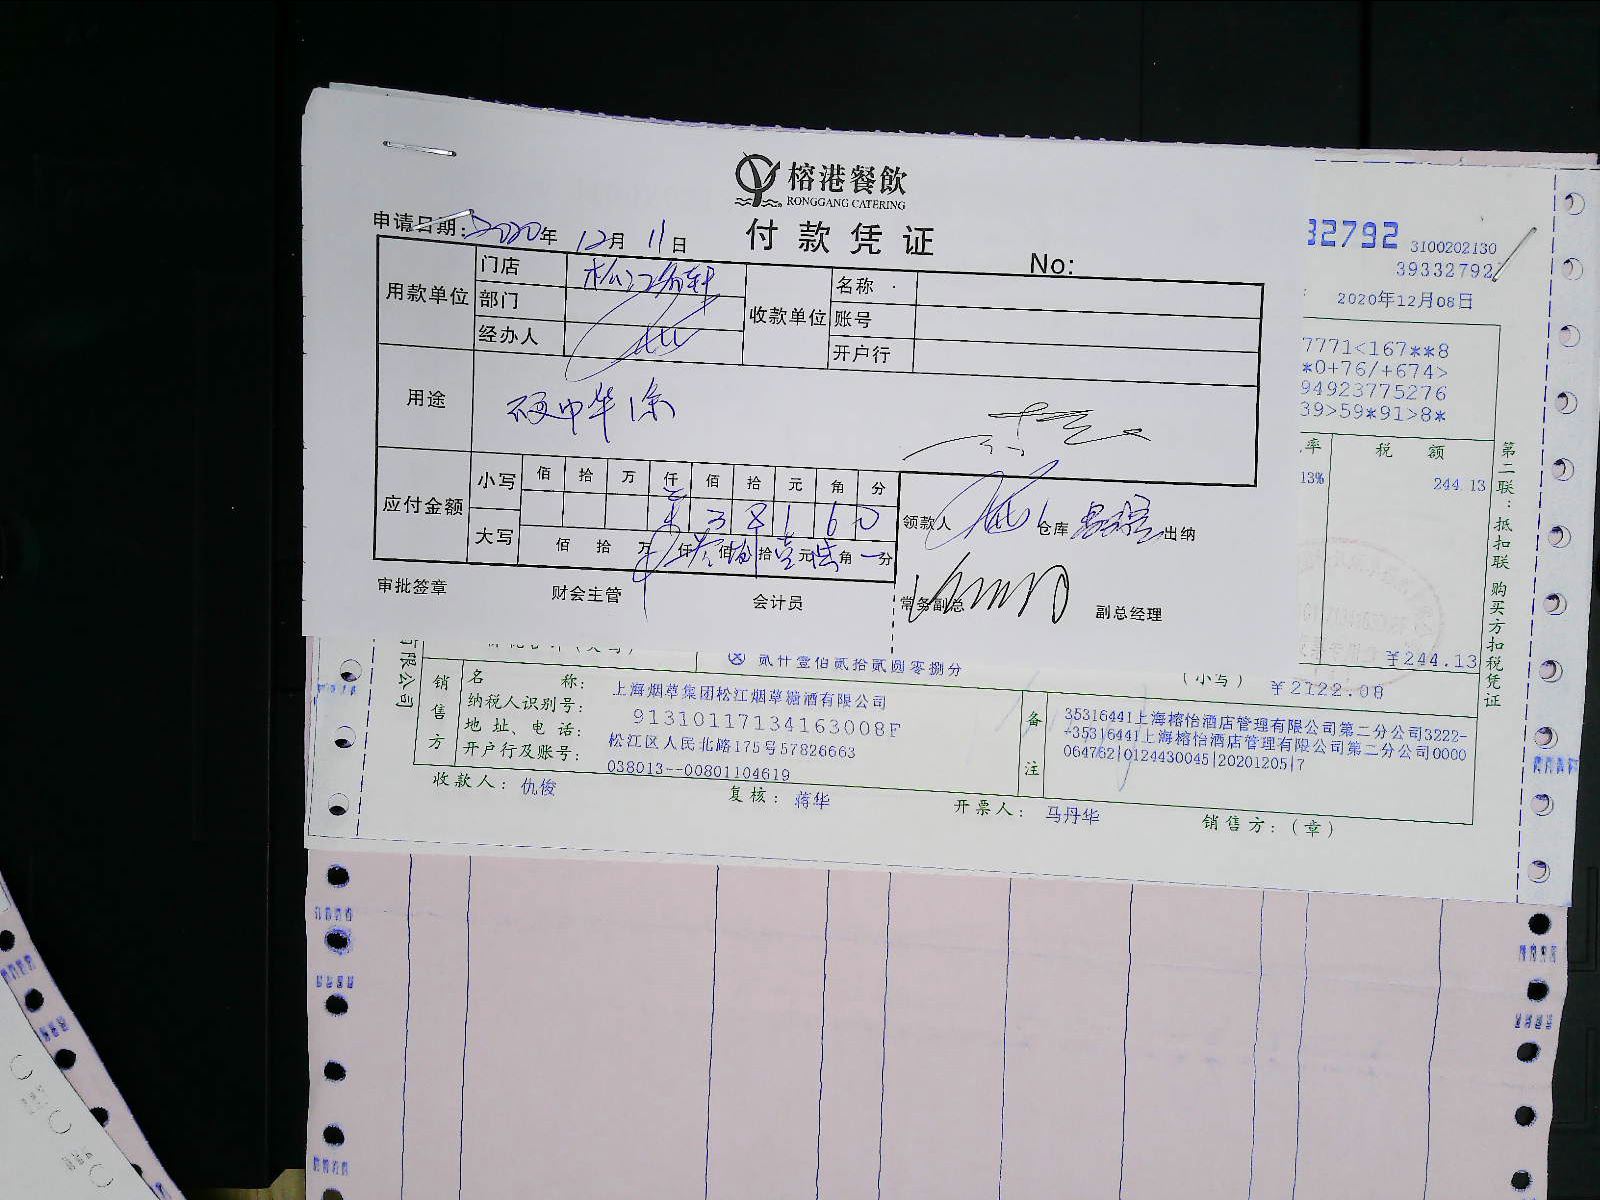 榕港餐飲
RONGGANG CATERING
付款凭证
申请日期:2020年12月11日
No:
用款单位
门店
部门
经办人
收款单位
名称
账号
开户行
用途
硬中华1条
应付金额
小写
佰 拾 万 仟 佰 拾 元 角 分
3 8 1 6 0
大写
佰 拾 万 仟 叁佰 捌拾 壹元 陆角 分
领款人
仓库
出纳
审批签章
财会主管
会计员
常务副总
副总经理
32792
3100202130
39332792
2020年12月08日
7771<167**8
*0+76/+674>
94923775276
39>59*91>8*
率
税 额
13%
244.13
¥244.13
第二联:抵扣联 购买方扣税凭证
有限公司
贰仟壹佰贰拾贰圆零捌分
(小写) ¥2122.08
销售方
名 称: 上海烟草集团松江烟草糖酒有限公司
纳税人识别号: 91310117134163008F
地址、电话: 松江区人民北路175号57826663
开户行及账号: 038013--00801104619
备注
35316441上海榕怡酒店管理有限公司第二分公司3222-
-35316441上海榕怡酒店管理有限公司第二分公司0000
064782|0124430045|20201205|7
收款人: 仇俊
复核: 蒋华
开票人: 马丹华
销售方:(章)